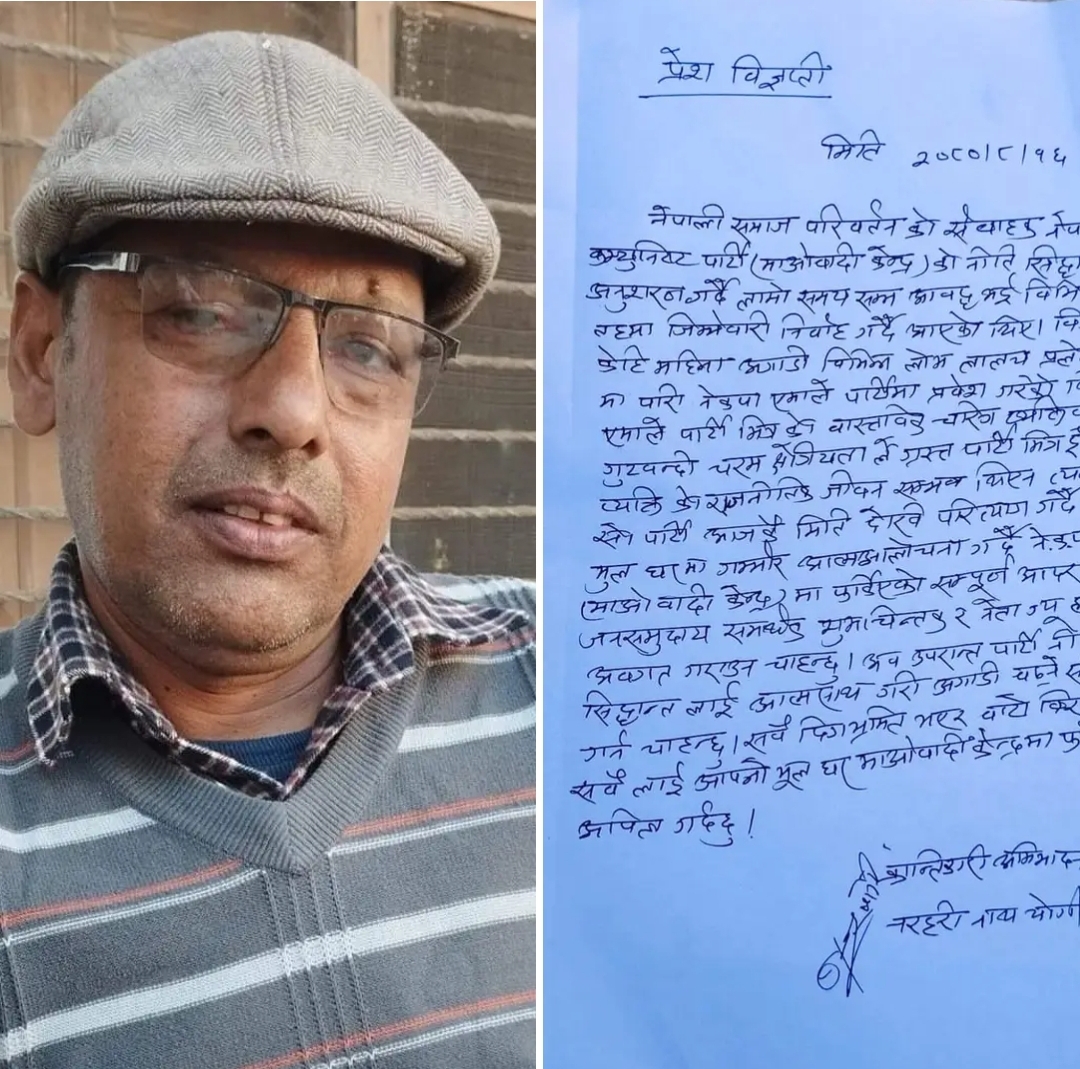 प्रेश विज्ञप्ती
मिति २०८०/८/१६
नेपाली समाज परिवर्तन को संवाहक नेप
कम्युनिस्ट पार्टी (माओवादी केन्द्र) को नीति सिद्धा
अनुशरण गर्दै लामो समय सम्म आवद्द भई विभि
तहमा जिम्मेवारी निर्वाह गर्दै आएको थिए। वि
केहि महिना अगाडी विभिन्न लोभ लालच प्रलो
मा पारी नेकपा एमाले पार्टीमा प्रवेश गरको
एमाले पार्टी भित्र को वास्तविक चरित्र
गुटवन्दी चरम क्षेत्रियता ले ग्रस्त पार्टी भित्र
व्यक्ति को राजनीतिक जीवन सम्भव थिएन त्य
पार्टी आजकै मिति देखि परित्याग गर्दै
मुल घर मा गम्भीर आत्मआलोचना गर्दै नेकप
(माओवादी केन्द्र) मा फर्किएको सम्पूर्ण आम
जनसमुदाय समर्थक शुभचिन्तक र नेता ज्यू ह
अवगत गराउन चाहन्छु। अव उपरान्त पार्टी नी
सिद्धान्त लाई आत्मसाथ गरी अगाडी वढ्ने स
गर्न चाहन्छु। सवै दिगभ्रमित भएर वाटो विरा
सवै लाई आफ्नो मूल घर माओवादी केन्द्रमा फ
अपिल गर्दछु!
क्रान्तिकारी अभिवादन
नरहरी नाथ योगी